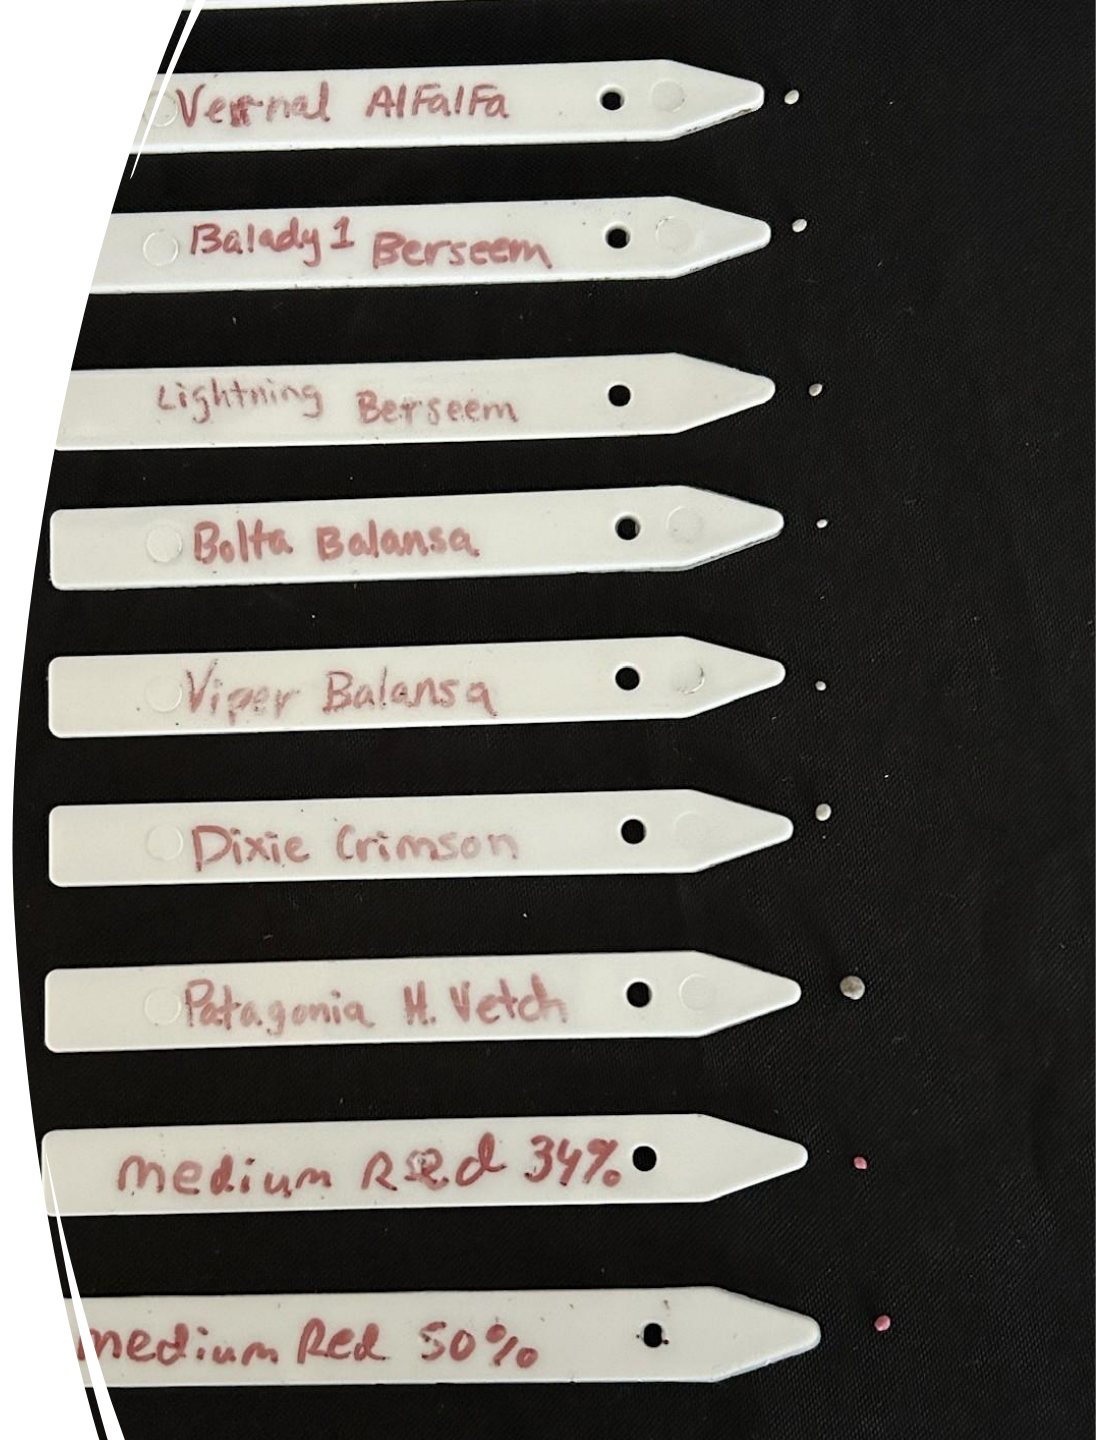 Vernal AlFalFa
Balady 1 Berseem
Lightning Berseem
Bolta Balansa
Viper Balansa
Dixie Crimson
Patagonia H. Vetch
medium Red 34%
medium Red 50%